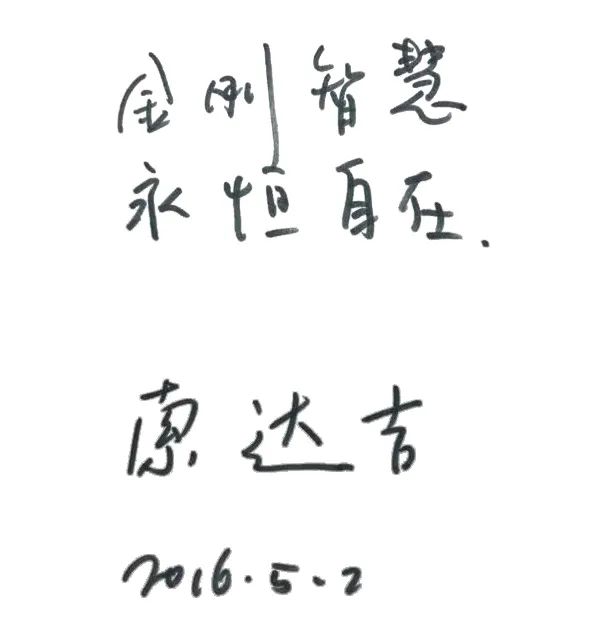 金刚智慧
永恒自在.
索达吉
2016.5.2